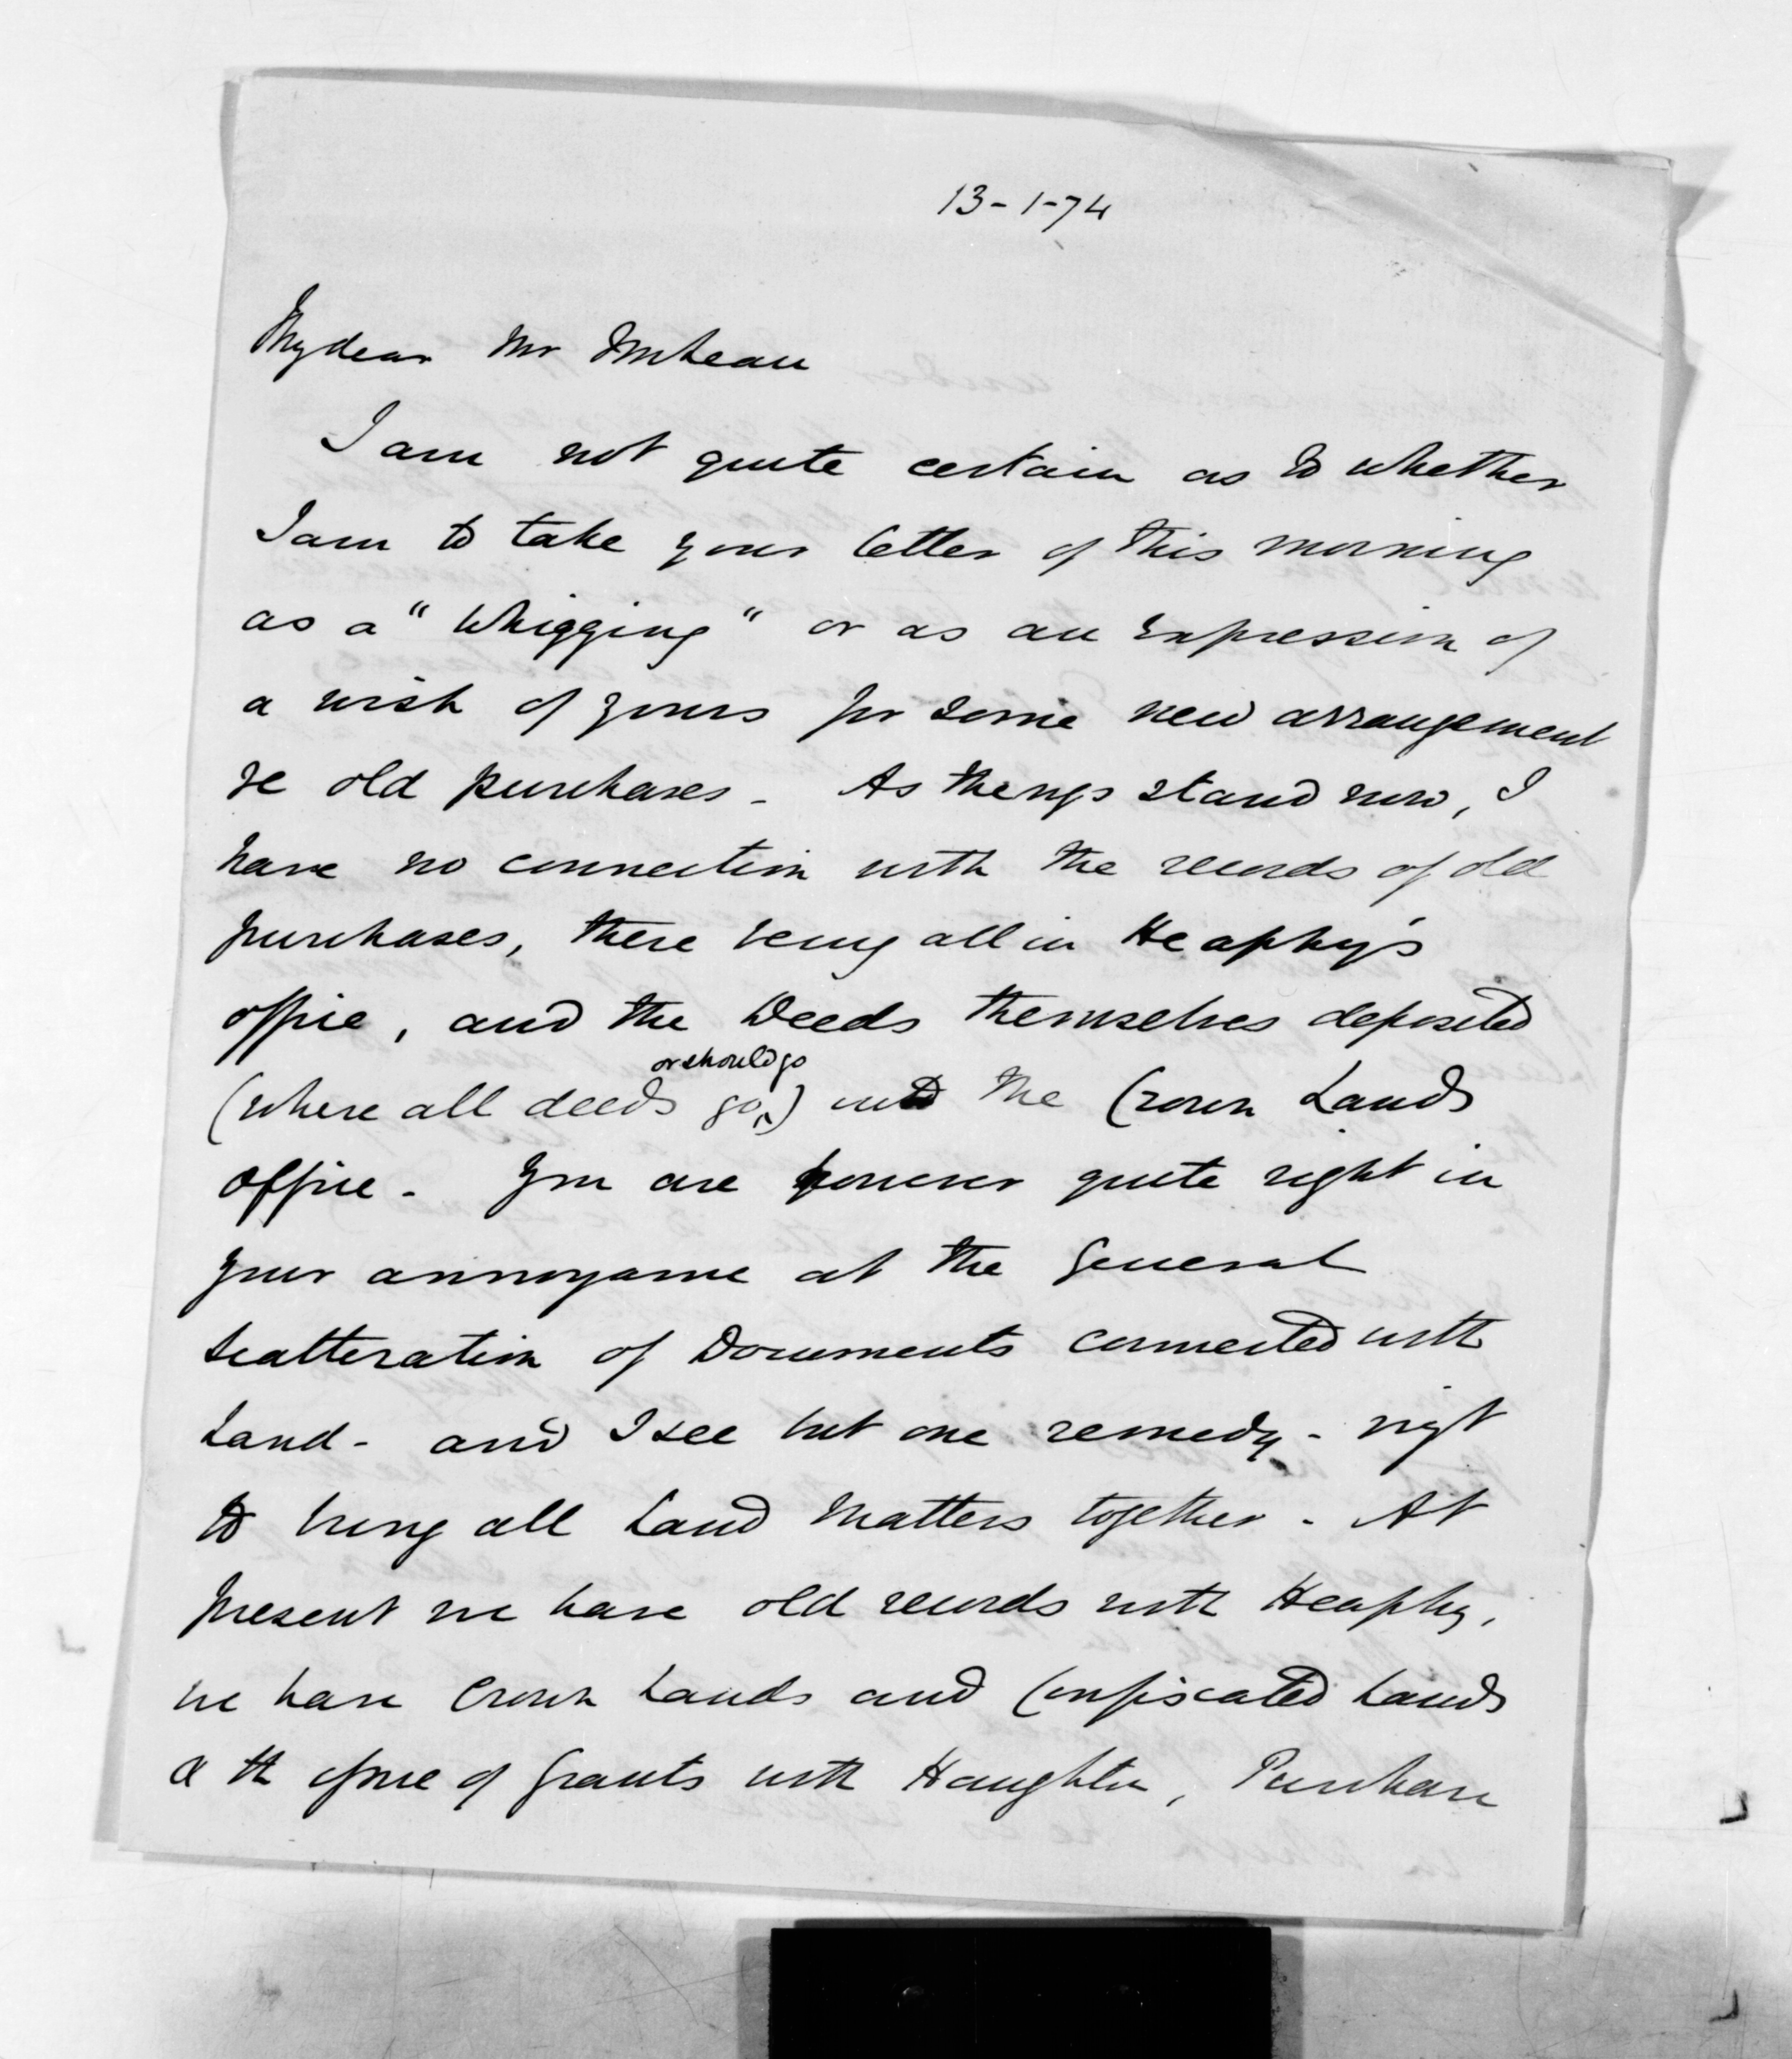 13-1-74
My dear Mr McLean
I am not quite certain as to whether
I am to take your letter of this morning
as a "Whigging" or as an expression of
a wish of yours for some new arrangement
re old purchases - As things stand now, I
have no connection with the records of old
purchases, these being all in Heaphy's
office, and the Deeds themselves deposited
or should go
(where all deeds go) in the Crown Lands
office - You are however quite right in
your annoyance at the general
scatteration of Documents connected with
Land - and I see but one remedy - vizt
to bring all Land Matters together - At
present we have old records with Heaphy,
we have Crown Lands and Confiscated Lands
& the issue of Grants with Haughton, Purchase